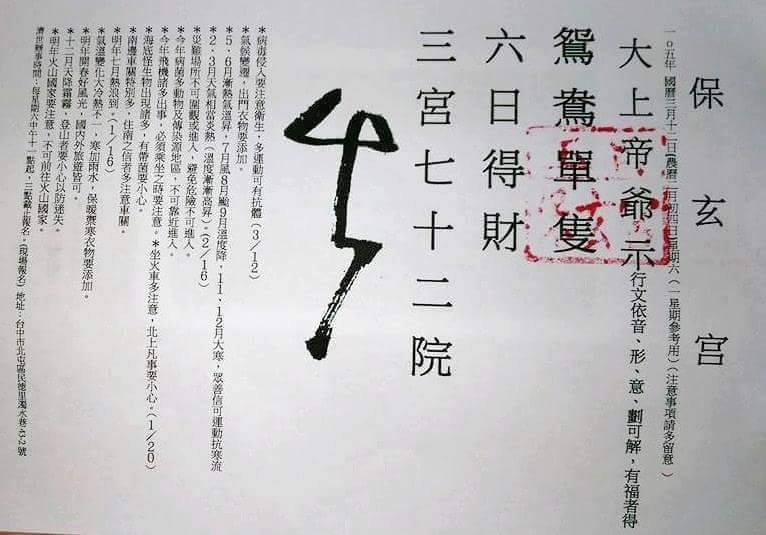 保玄宮
一０五年 國曆三月十二日(農曆二月初四日)星期六 (一星期參考用) (注意事項請多留意)
大上帝爺示 行文依音、形、意、劃可解，有福者得
鴛鴦單隻
六日得財
三宮七十二院
＊病毒侵入要注意衛生，多運動可有抗體 (3/12)
＊氣候變遷，出門衣物要添加。
＊5、6月漸熱氣溫昇，7月風8月颱9月溫度降，11、12月大寒，眾善信可運動抗寒流
＊2、3月天氣相當炎熱 (溫度漸漸高昇)。(2/16)
＊災難場所不可圍觀或進入，避免危險不可進入。
＊今年病菌多動物及傳染源地區，不可靠近進入。
＊今年飛機諸多出事，必須乘坐之時要注意。＊坐火車多注意，北上凡事要小心。(1/20)
＊海底怪生物出現諸多，有帶菌要小心。
＊南邊車關特別多，住南之信者多注意車關。
＊明年七月熱浪到。(1/16)
＊氣溫變化大冷熱不一，寒加雨水，保暖禦寒衣物要添加。
＊明年開春好風光，國內外旅遊皆可。
＊十二月天降霜霧，登山者要小心以防迷失。
＊明年火山國家要注意，不可前往火山國家。
濟世辦事時間：每星期六中午十一點起，三點截止報名。(現場報名) 地址：台中市北屯區民德里濁水巷43-2號